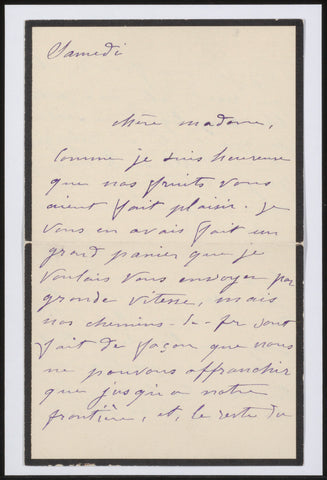 Samedi
chère madame,
Comme je suis heureuse
que nos fruits vous
aient fait plaisir. je
vous en avais fait un
grand panier que je
voulais vous envoyer par
grande vitesse, mais
nos chemins-de-fer sont
fait de façon que nous
ne pouvons affranchir
que jusqu'a notre
frontière, et, le reste du